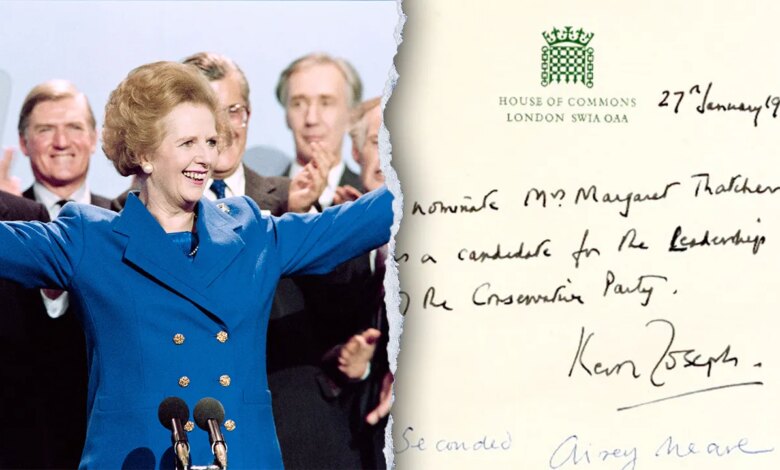 HOUSE OF COMMONS
LONDON SW1A OAA
27th January 19
nominate Mrs. Margaret Thatcher
a candidate for the Leadership
the Conservative Party.
Keith Joseph.
Seconded Airey Neave